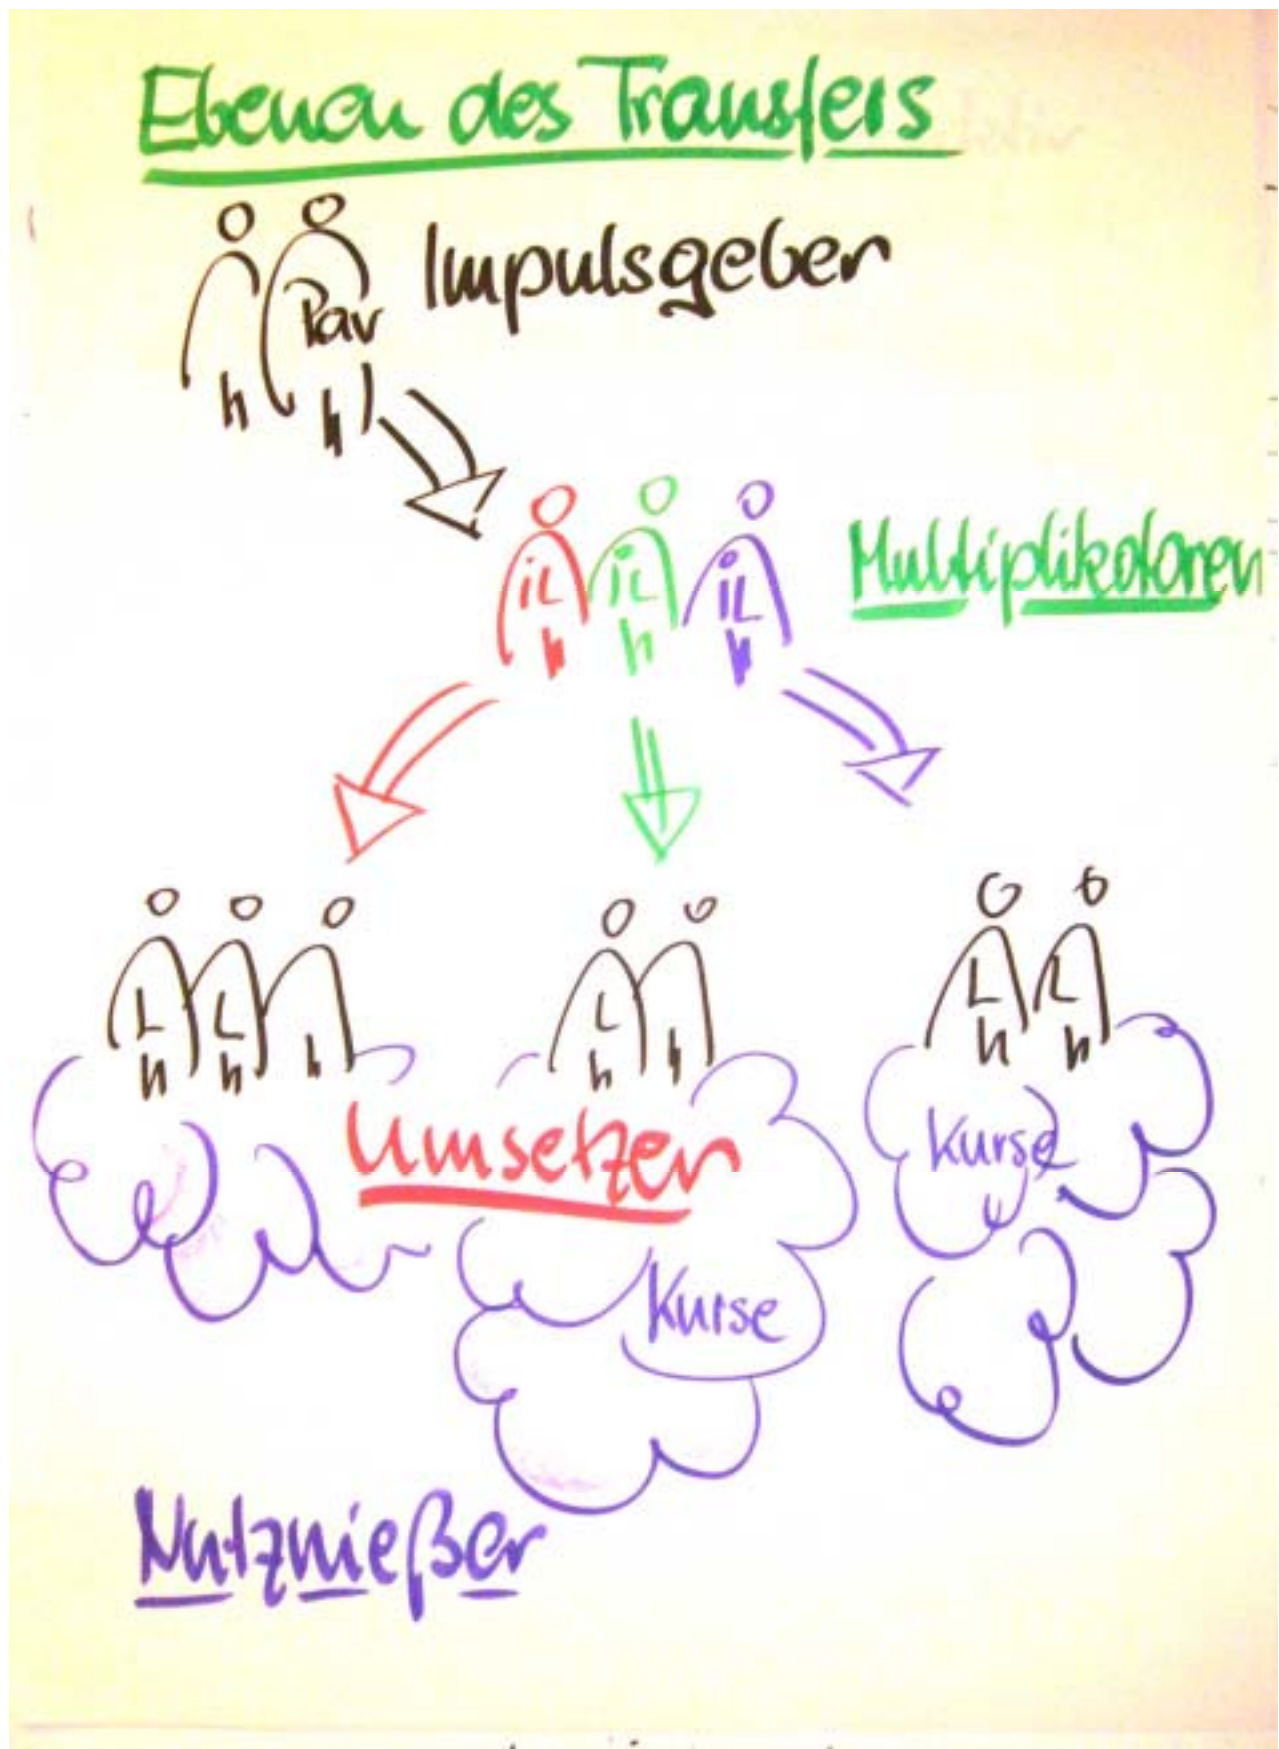 Ebenen des Transfers
Impulsgeber
Pav
iL iL iL
Multiplikatoren
L L
L
L L
Umsetzer
Kurse
Kurse
Nutznießer